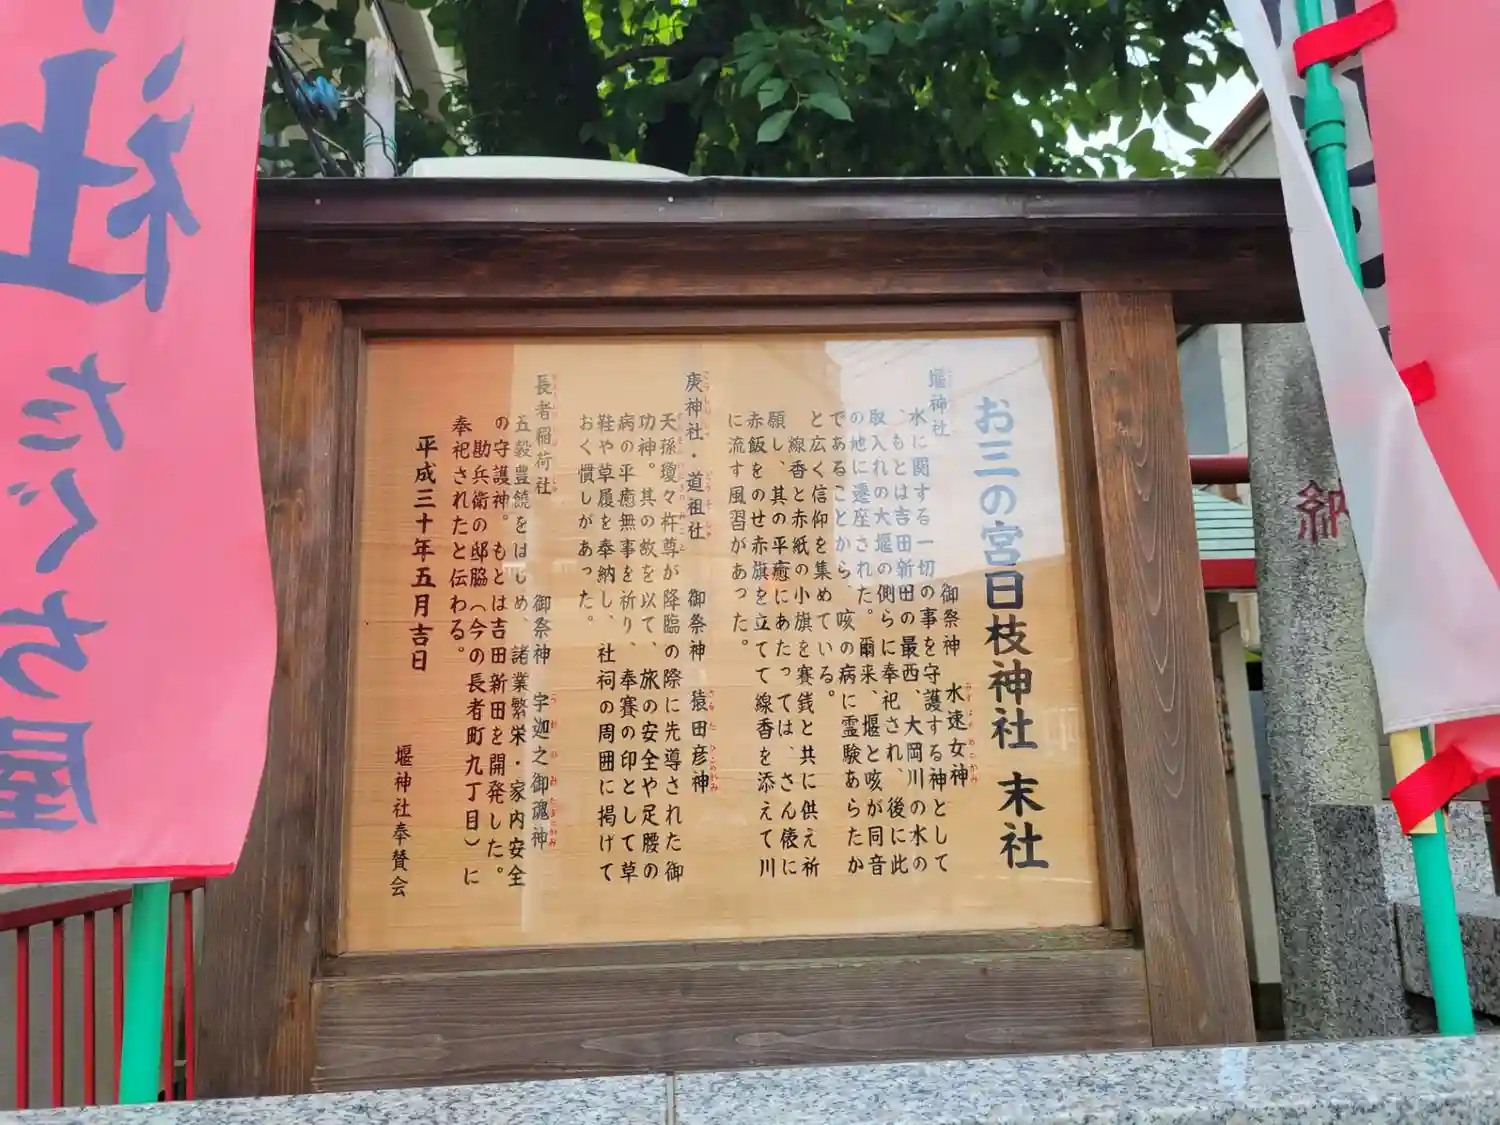 お三の宮日枝神社 末社
堰神社 御祭神 水速女神
水に関する一切の事を守護する神として
、もとは吉田新田の最西、大岡川の水の
取入れの大堰の側らに奉祀され、後に此
の地に遷座された。爾来、堰と咳が同音
であることから、咳の病に霊験あらたか
と広く信仰を集めている。
線香と赤紙の小旗を賽銭と共に供え祈
願し、其の平癒にあたっては、さん俵に
赤飯をのせ赤旗を立てて線香を添えて川
に流す風習があった。
庚神社・道祖社 御祭神 猿田彦神
天孫瓊々杵尊が降臨の際に先導された御
功神。其の故を以て、旅の安全や足腰の
病の平癒無事を祈り、奉賽の印として草
鞋や草履を奉納し、社祠の周囲に掲げて
おく慣しがあった。
長者稲荷社 御祭神 宇迦之御魂神
五穀豊饒をはじめ、諸業繁栄・家内安全
の守護神。もとは吉田新田を開発した。
勘兵衛の邸脇(今の長者町九丁目)に
奉祀されたと伝わる。
平成三十年五月吉日
堰神社奉賛会
社
たぐち屋
納